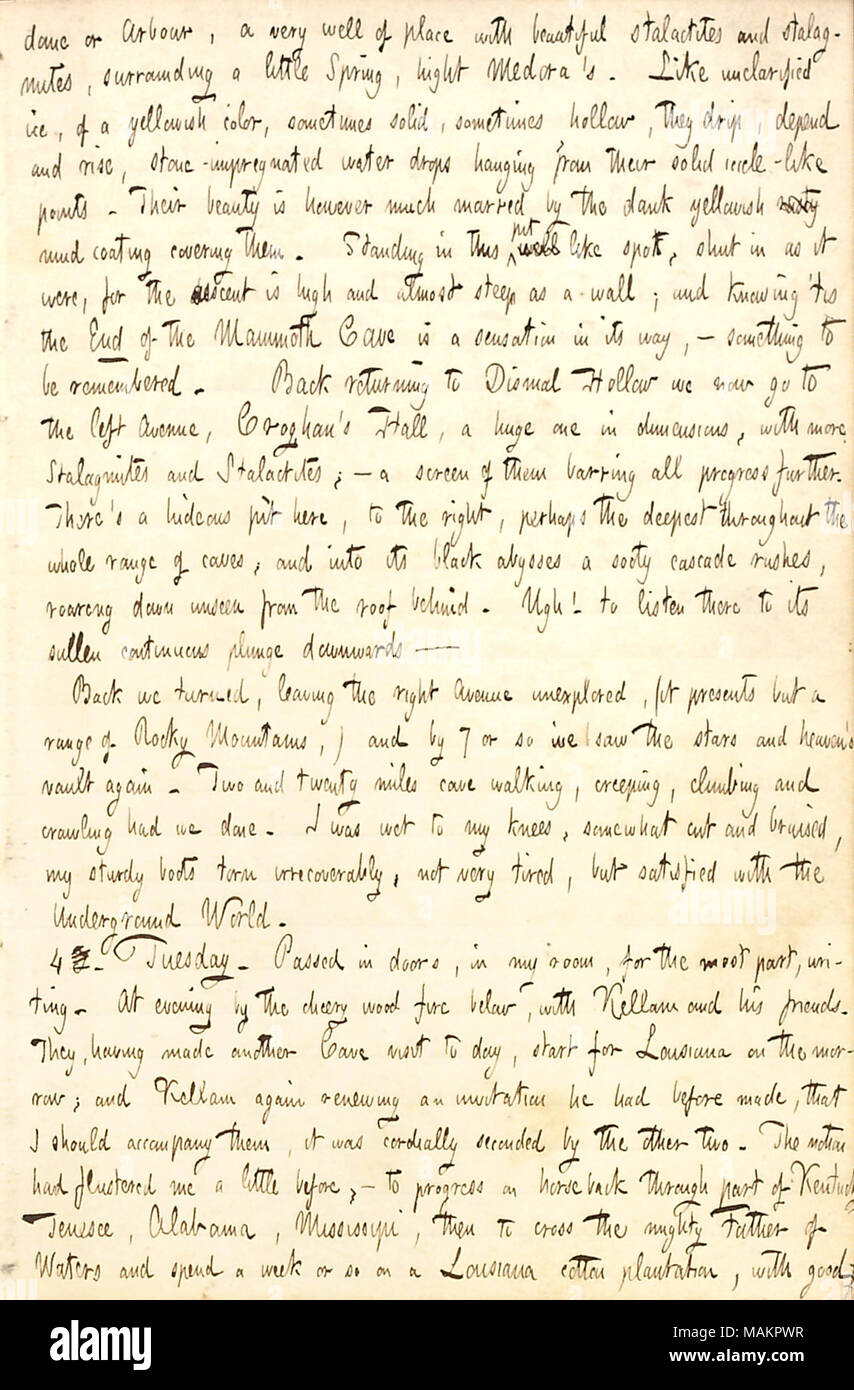 dome or Arbour, a very well of place with beautiful stalactites and stalag-
mites, surrounding a little Spring, hight Medora's. Like unclarified
ice, of a yellowish color, sometimes solid, sometimes hollow, they drip, depend
and rise, stone-impregnated water drops hanging from their solid icicle-like
points. Their beauty is however much marred by the dank yellowish
mud coating covering them. Standing in this pit well like spot, shut in as it
were, for the ascent is high and almost steep as a wall; and knowing 'tis
the End of the Mammoth Cave is a sensation in its way, — something to
be remembered. Back returning to Dismal Hollow we now go to
the left Avenue, Croghan's Hall, a huge one in dimensions, with more
Stalagmites and Stalactites; — a screen of them barring all progress further.
There's a hideous pit here, to the right, perhaps the deepest throughout the
whole range of caves; and into its black abysses a sooty cascade rushes,
roareng down unseen from the roof behind. Ugh! to listen there to its
sullen continuous plunge downwards —
Back we turned, leaving the right Avenue unexplored, (it presents but a
range of Rocky Mountains,) and by 7 or so we saw the stars and heaven's
vault again. Two and twenty miles cave walking, creeping, climbing and
crawling had we done. I was wet to my knees, somewhat cut and bruised,
my sturdy boots torn irrecoverably, not very tired, but satisfied with the
Underground World.
4. Tuesday. Passed in doors, in my room, for the most part, wri-
ting. At evening by the cheery wood fire below, with Kellam and his friends.
They, having made another Cave visit to day, start for Lousiana on the mor-
row; and Kellam again renewing an invitation he had before made, that
I should accompany them, it was cordially seconded by the other two. The notion
had flustered me a little before, — to progress on horseback through part of Kentucky
Tenessee, Alabama, Mississipi, then to cross the mighty Father of
Waters and spend a week or so on a Lousiana cotton plantation, with good
alamy
Image ID: MAKPWR
www.alamy.com